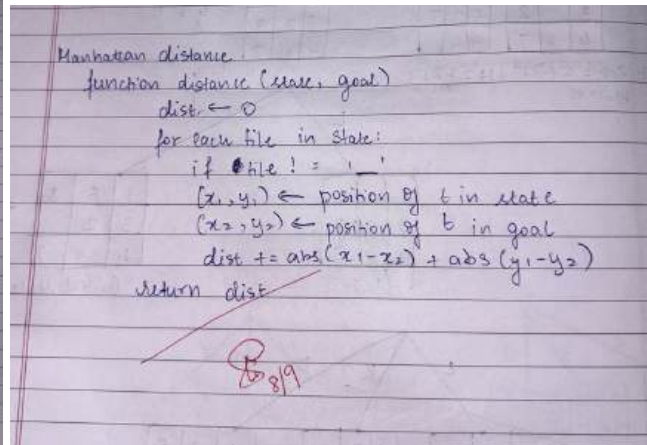 Manhattan distance.
function distance (state, goal)
dist ← 0
for each tile in state:
if tile != '_'
(x₁, y₁) ← position of t in state
(x₂, y₂) ← position of t in goal
dist += abs(x₁-x₂) + abs(y₁-y₂)
return dist
8/9